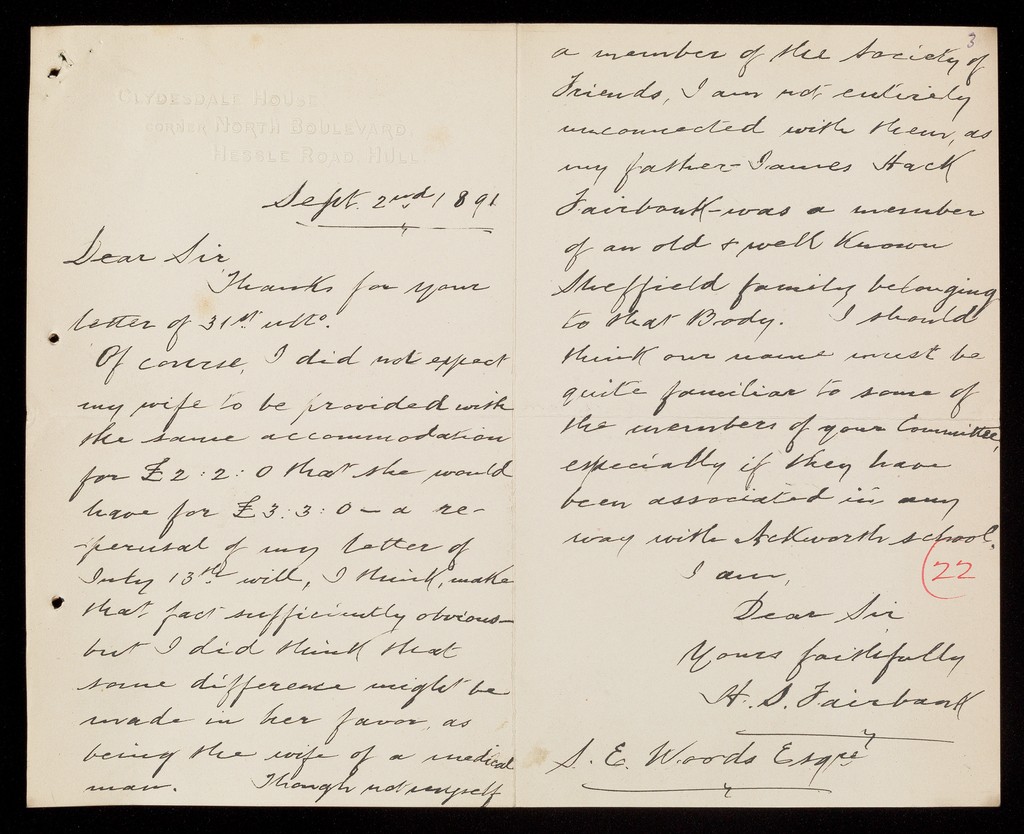 Clydesdale House
corner North Boulevard.
Hessle Road, Hull.
Sept. 2nd 1891
Dear Sir
Thanks for your
letter of 31st ulto.
Of course, I did not expect
my wife to be provided with
the same accommodation
for £2:2:0 that she would
have for £3:3:0 - a re-
-perusal of my letter of
July 13th will, I think, make
that fact sufficiently obvious -
but I did think that
some difference might be
made in her favor, as
being the wife of a medical
man. Though not myself
3
a member of the Society of
Friends, I am not entirely
unconnected with them, as
my father - James Hack
Fairbank - was a member
of an old & well known
Sheffield family belonging
to that Body. I should
think our name must be
quite familiar to some of
the members of your Committee,
especially if they have
been associated in any
way with Ackworth school.
22
I am,
Dear Sir
Yours faithfully
H. S. Fairbank
S. E. Woods Esqre